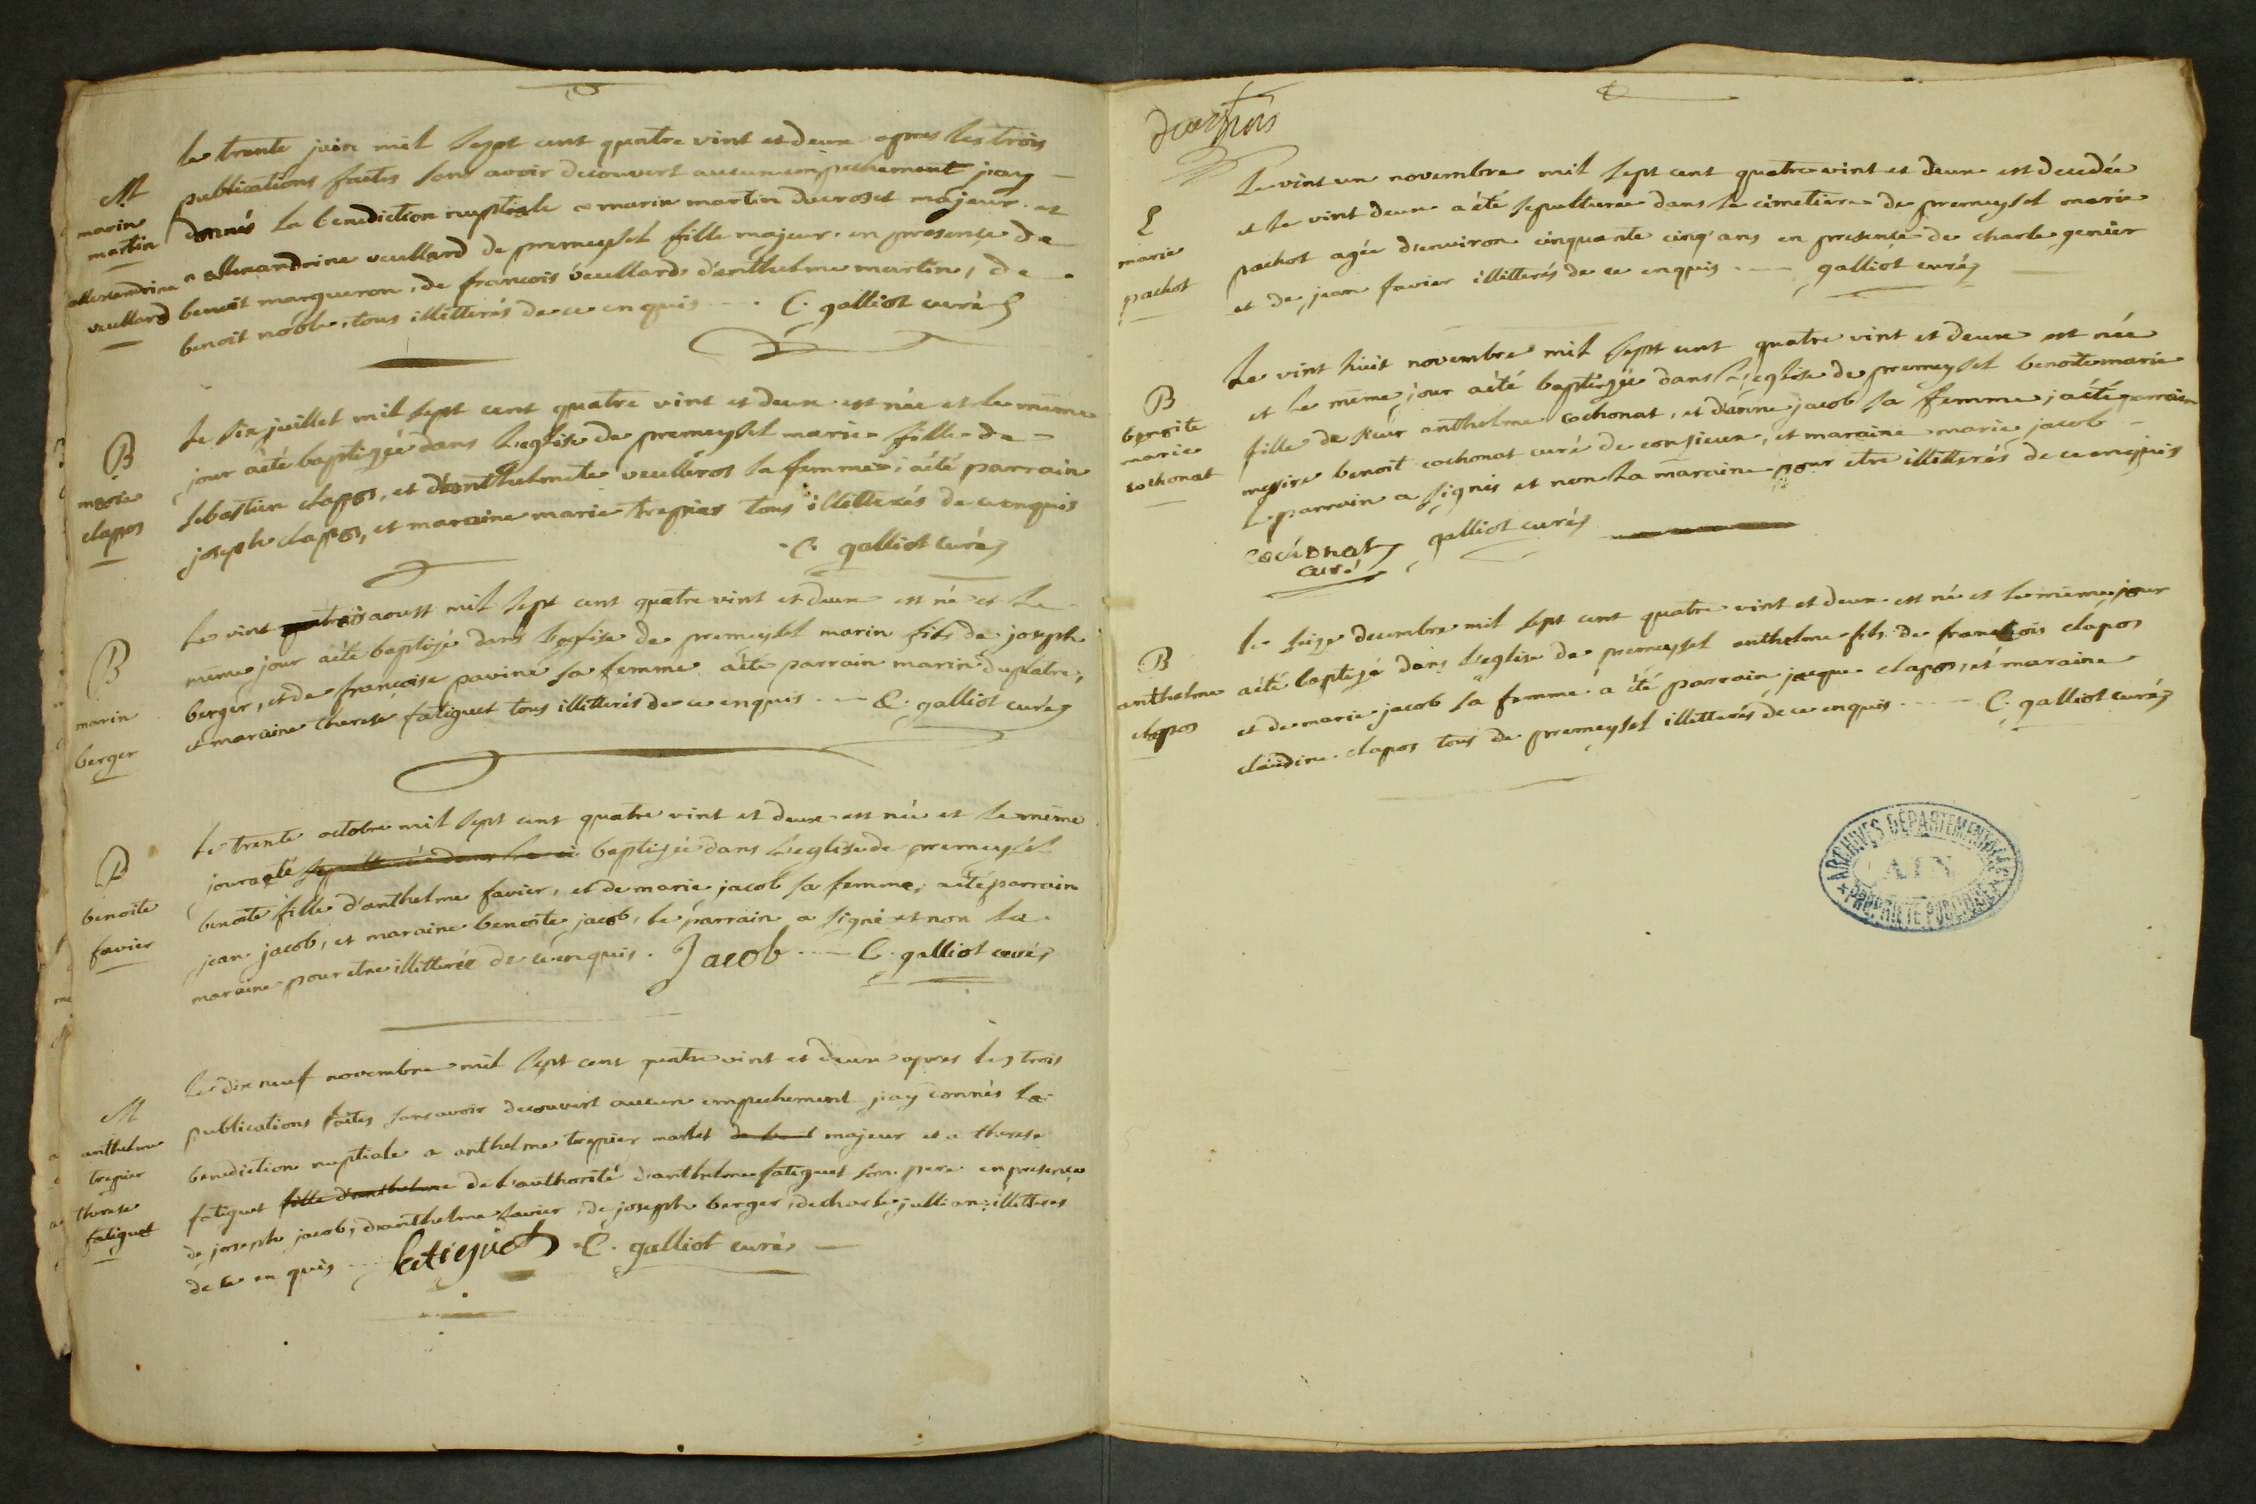 M
marin
martin
allexandrine
veullard
le trente juin mil sept cent quatre vint et deux apres les trois
publications faites sans avoir decouvert aucun empechement jay
donnés la benediction nuptiale a marin martin ducroset majeur et
a allexandrine veullard de premeysel fille majeur en presence de
benoit margueron, de francois veullard d'anthelme martin, de
benoit noble, tous illitterés de ce enquis C. galliot curé
B
marie
clapos
Le six juillet mil sept cent quatre vint et deux est née et le même
jour a été baptizée dans l'eglise de premeysel marie fille de
sebastien clapos, et d'anthelmete veulleros sa femme; a été parrain
joseph clapos, et maraine marie trepier tous illitterés de ce enquis
C. galliot curé
B
marin
berger
Le vint aoust mil sept cent quatre vint et deux est né et le
même jour a été baptizé dans l'eglise de premeysel marin fils de joseph
berger, et de francoise pavine sa femme a été parrain marin duplatre,
et maraine therese fatiguet tous illitterés de ce enquis C. galliot curé
B
benoite
favier
Le trente octobre mil sept cent quatre vint et deux est née et le même
jour a été sepulturée dans le ci baptizée dans l'eglise de premeysel
benoite fille d'anthelme favier, et de marie jacob sa femme, a été parrain
jean jacob, et maraine benoite jacob, le parrain a signé et non la
maraine pour etre illitterée de ce enquis. Jacob C. galliot curé
M
anthelme
trepier
therese
fatiguet
Le dix neuf novembre mil sept cent quatre vint et deux apres les trois
publications faites sans avoir decouvert aucun empechement jay donnés la
benediction nuptiale a anthelme trepier majeur et a therese
fatiguet fille d'anthelme de l'authorité d'anthelme fatiguet son pere en presence
de joseph jacob, d'anthelme favier, de joseph berger, de charle jullian illitteres
de ce enquis fatiguet C. galliot curé
S
marie
pachot
Le vint un novembre mil sept cent quatre vint et deux est decedée
et le vint deux a été sepulturée dans le cimetiere de premeysel marie
pachot agée d'environ cinquante cinq ans en presence de charle genier
et de jean favier illitterés de ce enquis galliot curé
B
benoite
marie
cochonat
Le vint huit novembre mil sept cent quatre vint et deux est née
et le même jour a été baptizée dans l'eglise de premeysel benoite marie
fille de sieur anthelme cochonat, et d'anne jacob sa femme, a été parrain
messire benoit cochonat curé de conzieux, et maraine marie jacob
le parrain a signés et non la maraine pour etre illitterés de ce enquis
cochonat galliot curé
curé
B
anthelme
clapos
le seize decembre mil sept cent quatre vint et deux est né et le même jour
a été baptizé dans l'eglise de premeysel anthelme fils de francois clapos
et de marie jacob sa femme a été parrain jaque clapos, et maraine
claudine clapos tous de premeysel illitterés de ce enquis C. galliot curé
ARCHIVES DÉPARTEMENTALES
AIN
PROPRIÉTÉ PUBLIQUE